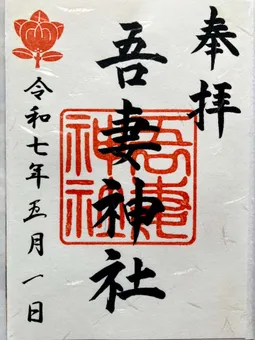 奉拝
吾妻神社
吾妻
神社
令和七年五月一日